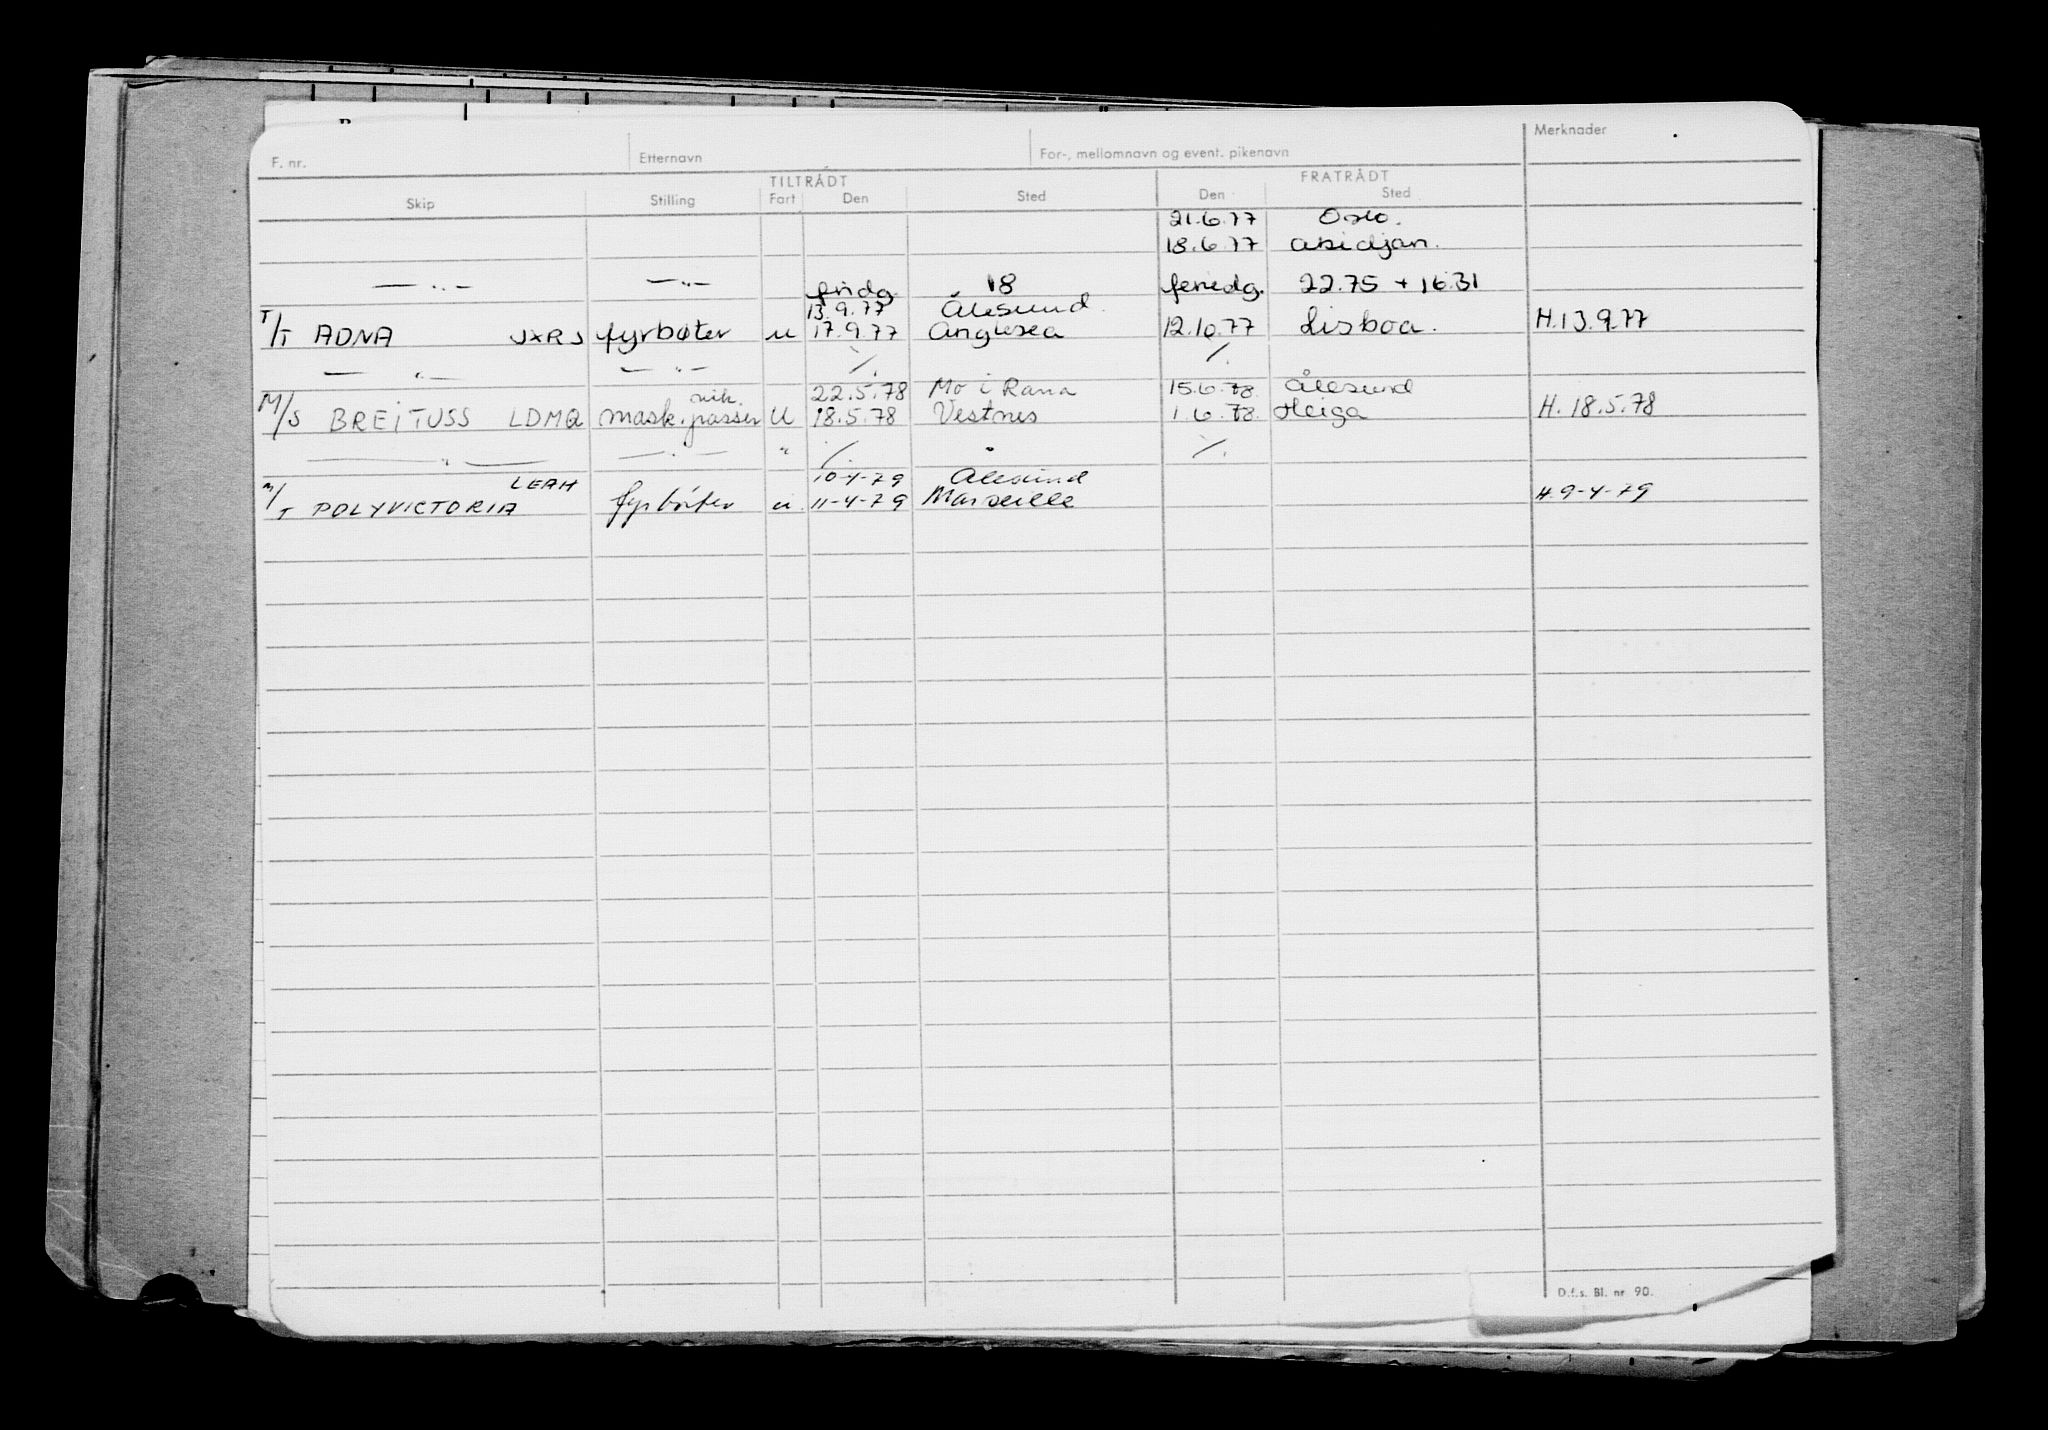 F. nr. Etternavn For-, mellomnavn og event. pikenavn Merknader
TILTRÅDT FRATRÅDT
Skip Stilling Fart Den Sted Den Sted
21.6.77 Oslo.
18.6.77 abidjan.
— " — — " — fridg. 18 feriedg. 22.75 + 16.31
13.9.77 Ålesund.
T/T ADNA JXRJ fyrbøter u 17.9.77 Anglesea 12.10.77 Lisboa. H.13.9.77
— " — — " — /. /.
vik. 22.5.78 Mo i Rana 15.6.78. Ålesund
M/S BREITUSS LDMQ mask.passer U 18.5.78 Vestnes 1.6.78. Helga H. 18.5.78
— " — — " — " /. " /.
LEAH 10-4-79 Ålesund
M/T POLYVICTORIA fyrbøter u. 11-4-79 Marseille H.9-4-79
D.f.s. Bl. nr 90.